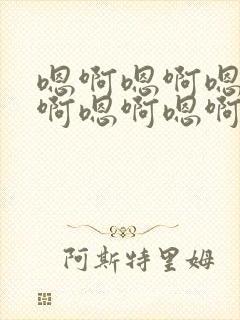 嗯啊嗯啊嗯
啊嗯啊嗯啊
阿斯特里姆